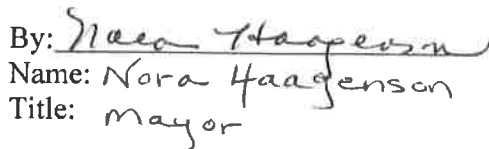 By: Nora Haagenson
Name: Nora Haagenson
Title: Mayor